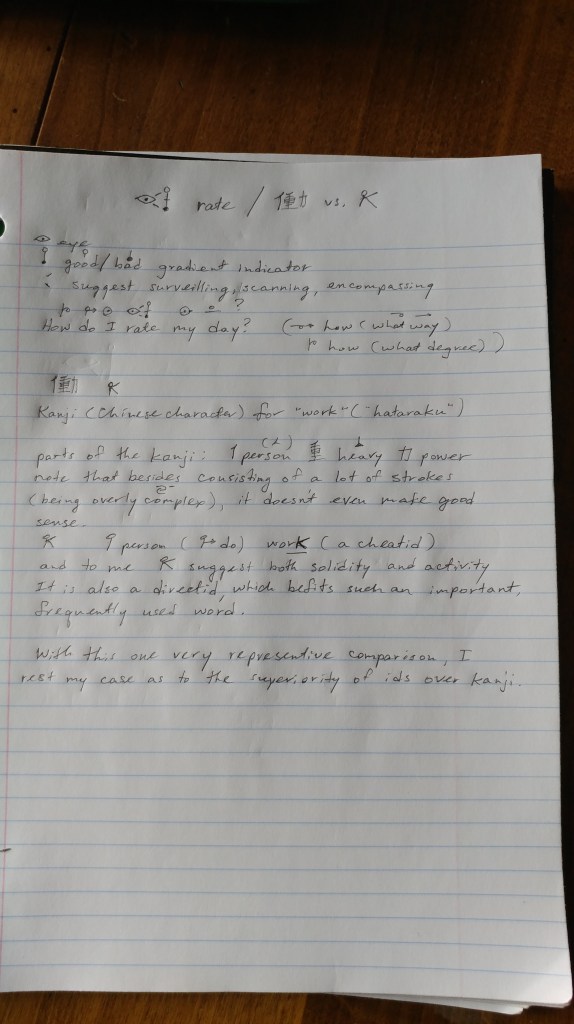 rate / 働 vs.
eye
good/bad gradient indicator
suggest surveilling, scanning, encompassing
?
How do I rate my day? (how (what way)
how (what degree))
働
Kanji (Chinese character) for "work" ("hataraku")
parts of the kanji: person 重 heavy 力 power
note that besides consisting of a lot of strokes
(being overly complex), it doesn't even make good
sense.
person (do) work (a cheatid)
and to me suggest both solidity and activity
It is also a directid, which befits such an important,
frequently used word.
With this one very representive comparison, I
rest my case as to the superiority of ids over kanji.